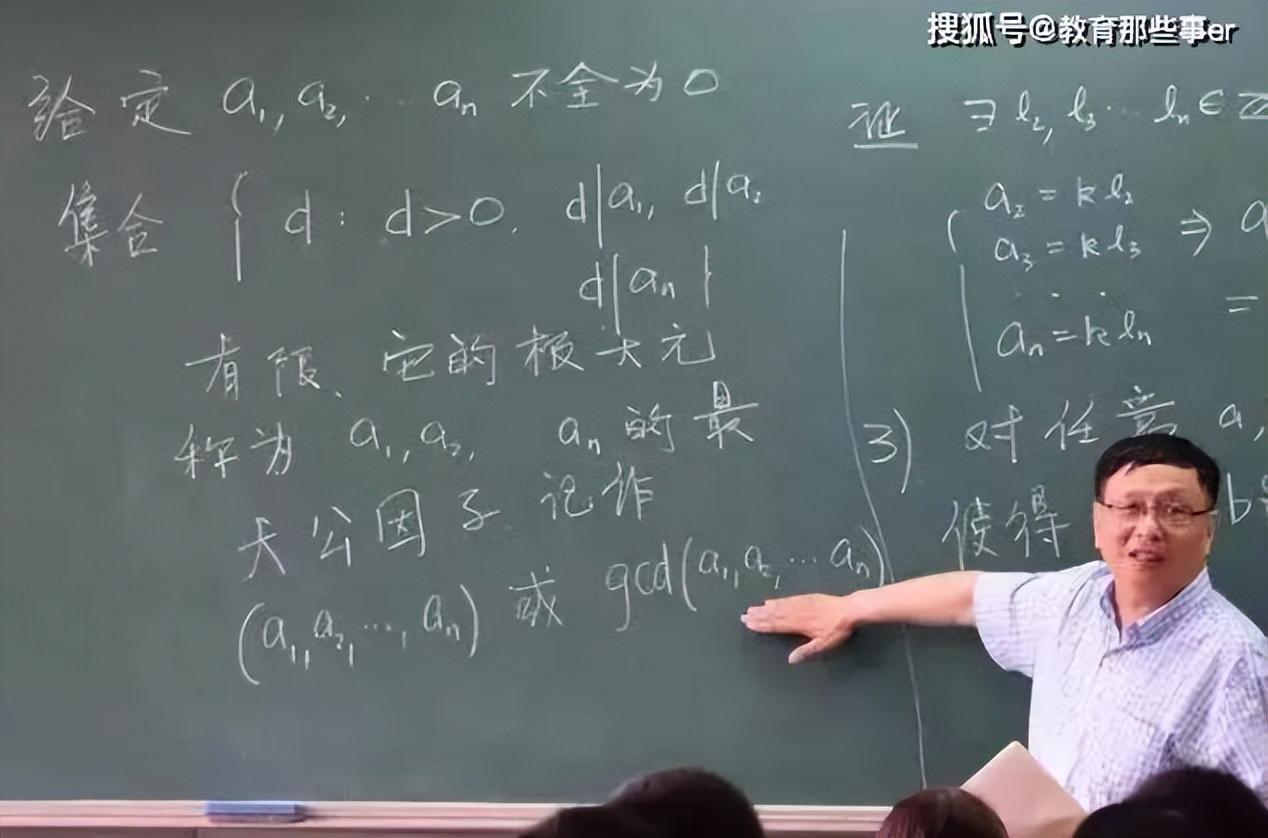 搜狐号@教育那些事er
给定 a₁, a₂, ⋯ aₙ 不全为0
集合 { d : d>0, d|a₁, d|a₂
d|aₙ }
有限、它的极大元
称为 a₁, a₂, aₙ 的最
大公因子 记作
(a₁, a₂, ⋯, aₙ) 或 gcd(a₁, a₂, ⋯ aₙ)
证 ∃ l₂, l₃ ⋯ lₙ ∈ ℤ
a₂ = k l₂
a₃ = k l₃ ⇒ a
⋯
aₙ = k lₙ =
3) 对任意 a,
使得 b